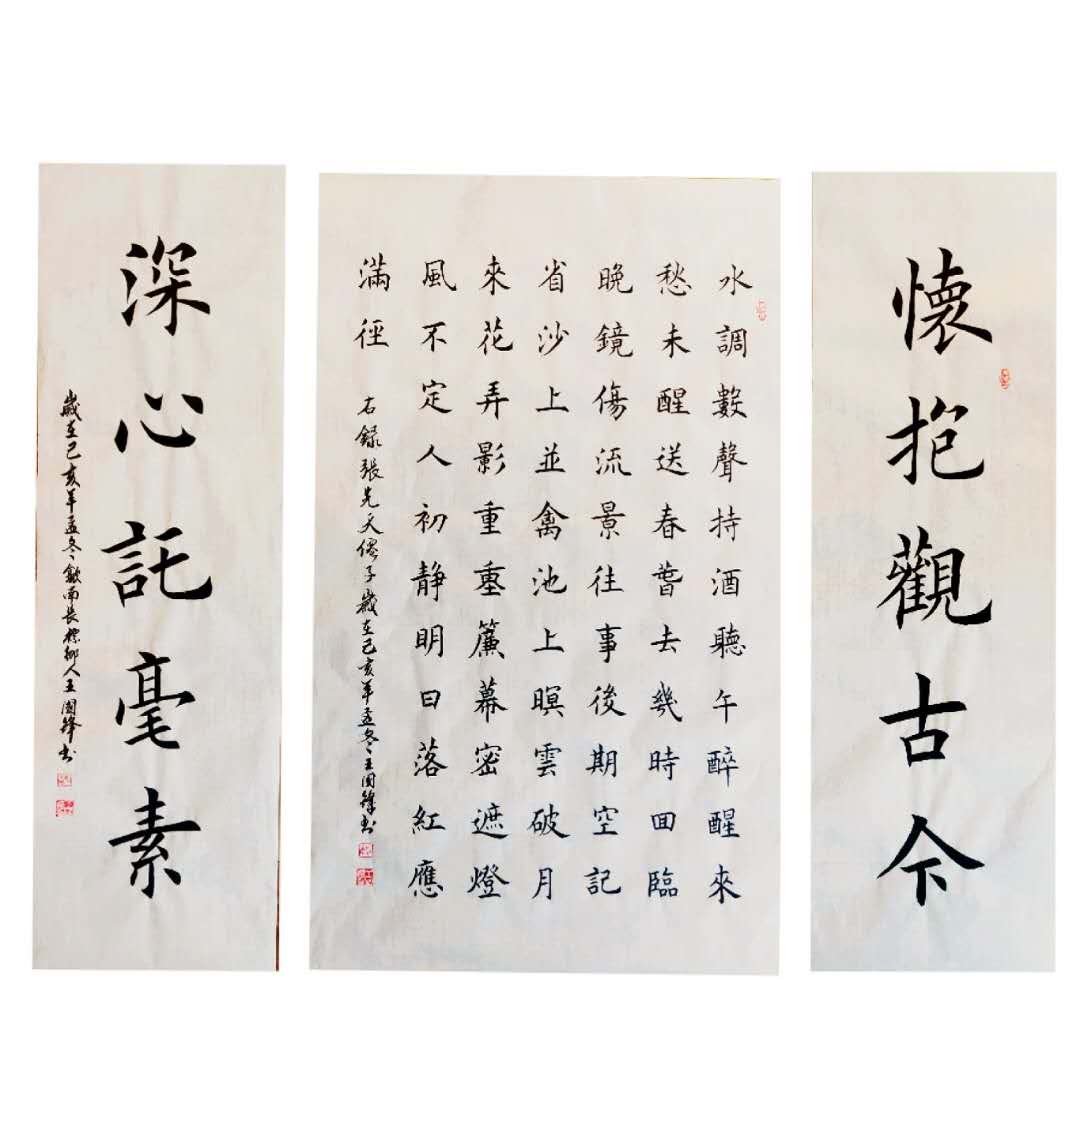 懷抱觀古今
水調數聲持酒聽午醉醒來
愁未醒送春萅去幾時囬臨
晚鏡傷流景往事後期空記
省沙上並禽池上暝雲破月
來花弄影重重簾幕密遮燈
風不定人初靜明日落紅應
滿徑
右錄張先天僊子歲在己亥年孟冬王國鋒書
深心託毫素
歲在己亥年孟冬歙南長標鄉人王國鋒書